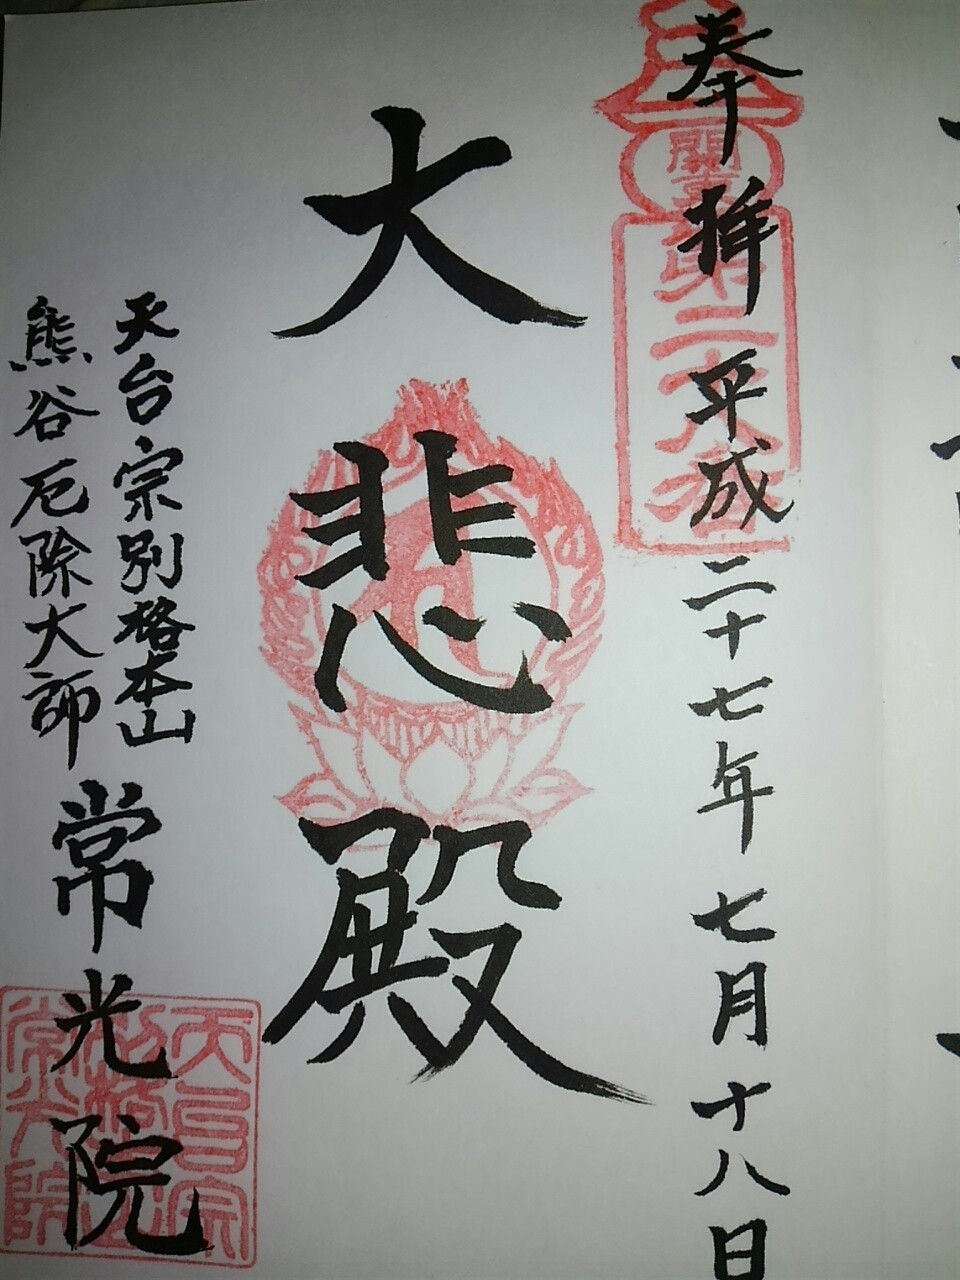 奉拝 平成二十七年七月十八日
大悲殿
天台宗別格本山
熊谷厄除大師
常光院
関東
第二六番
天台宗
別格本山
常光院